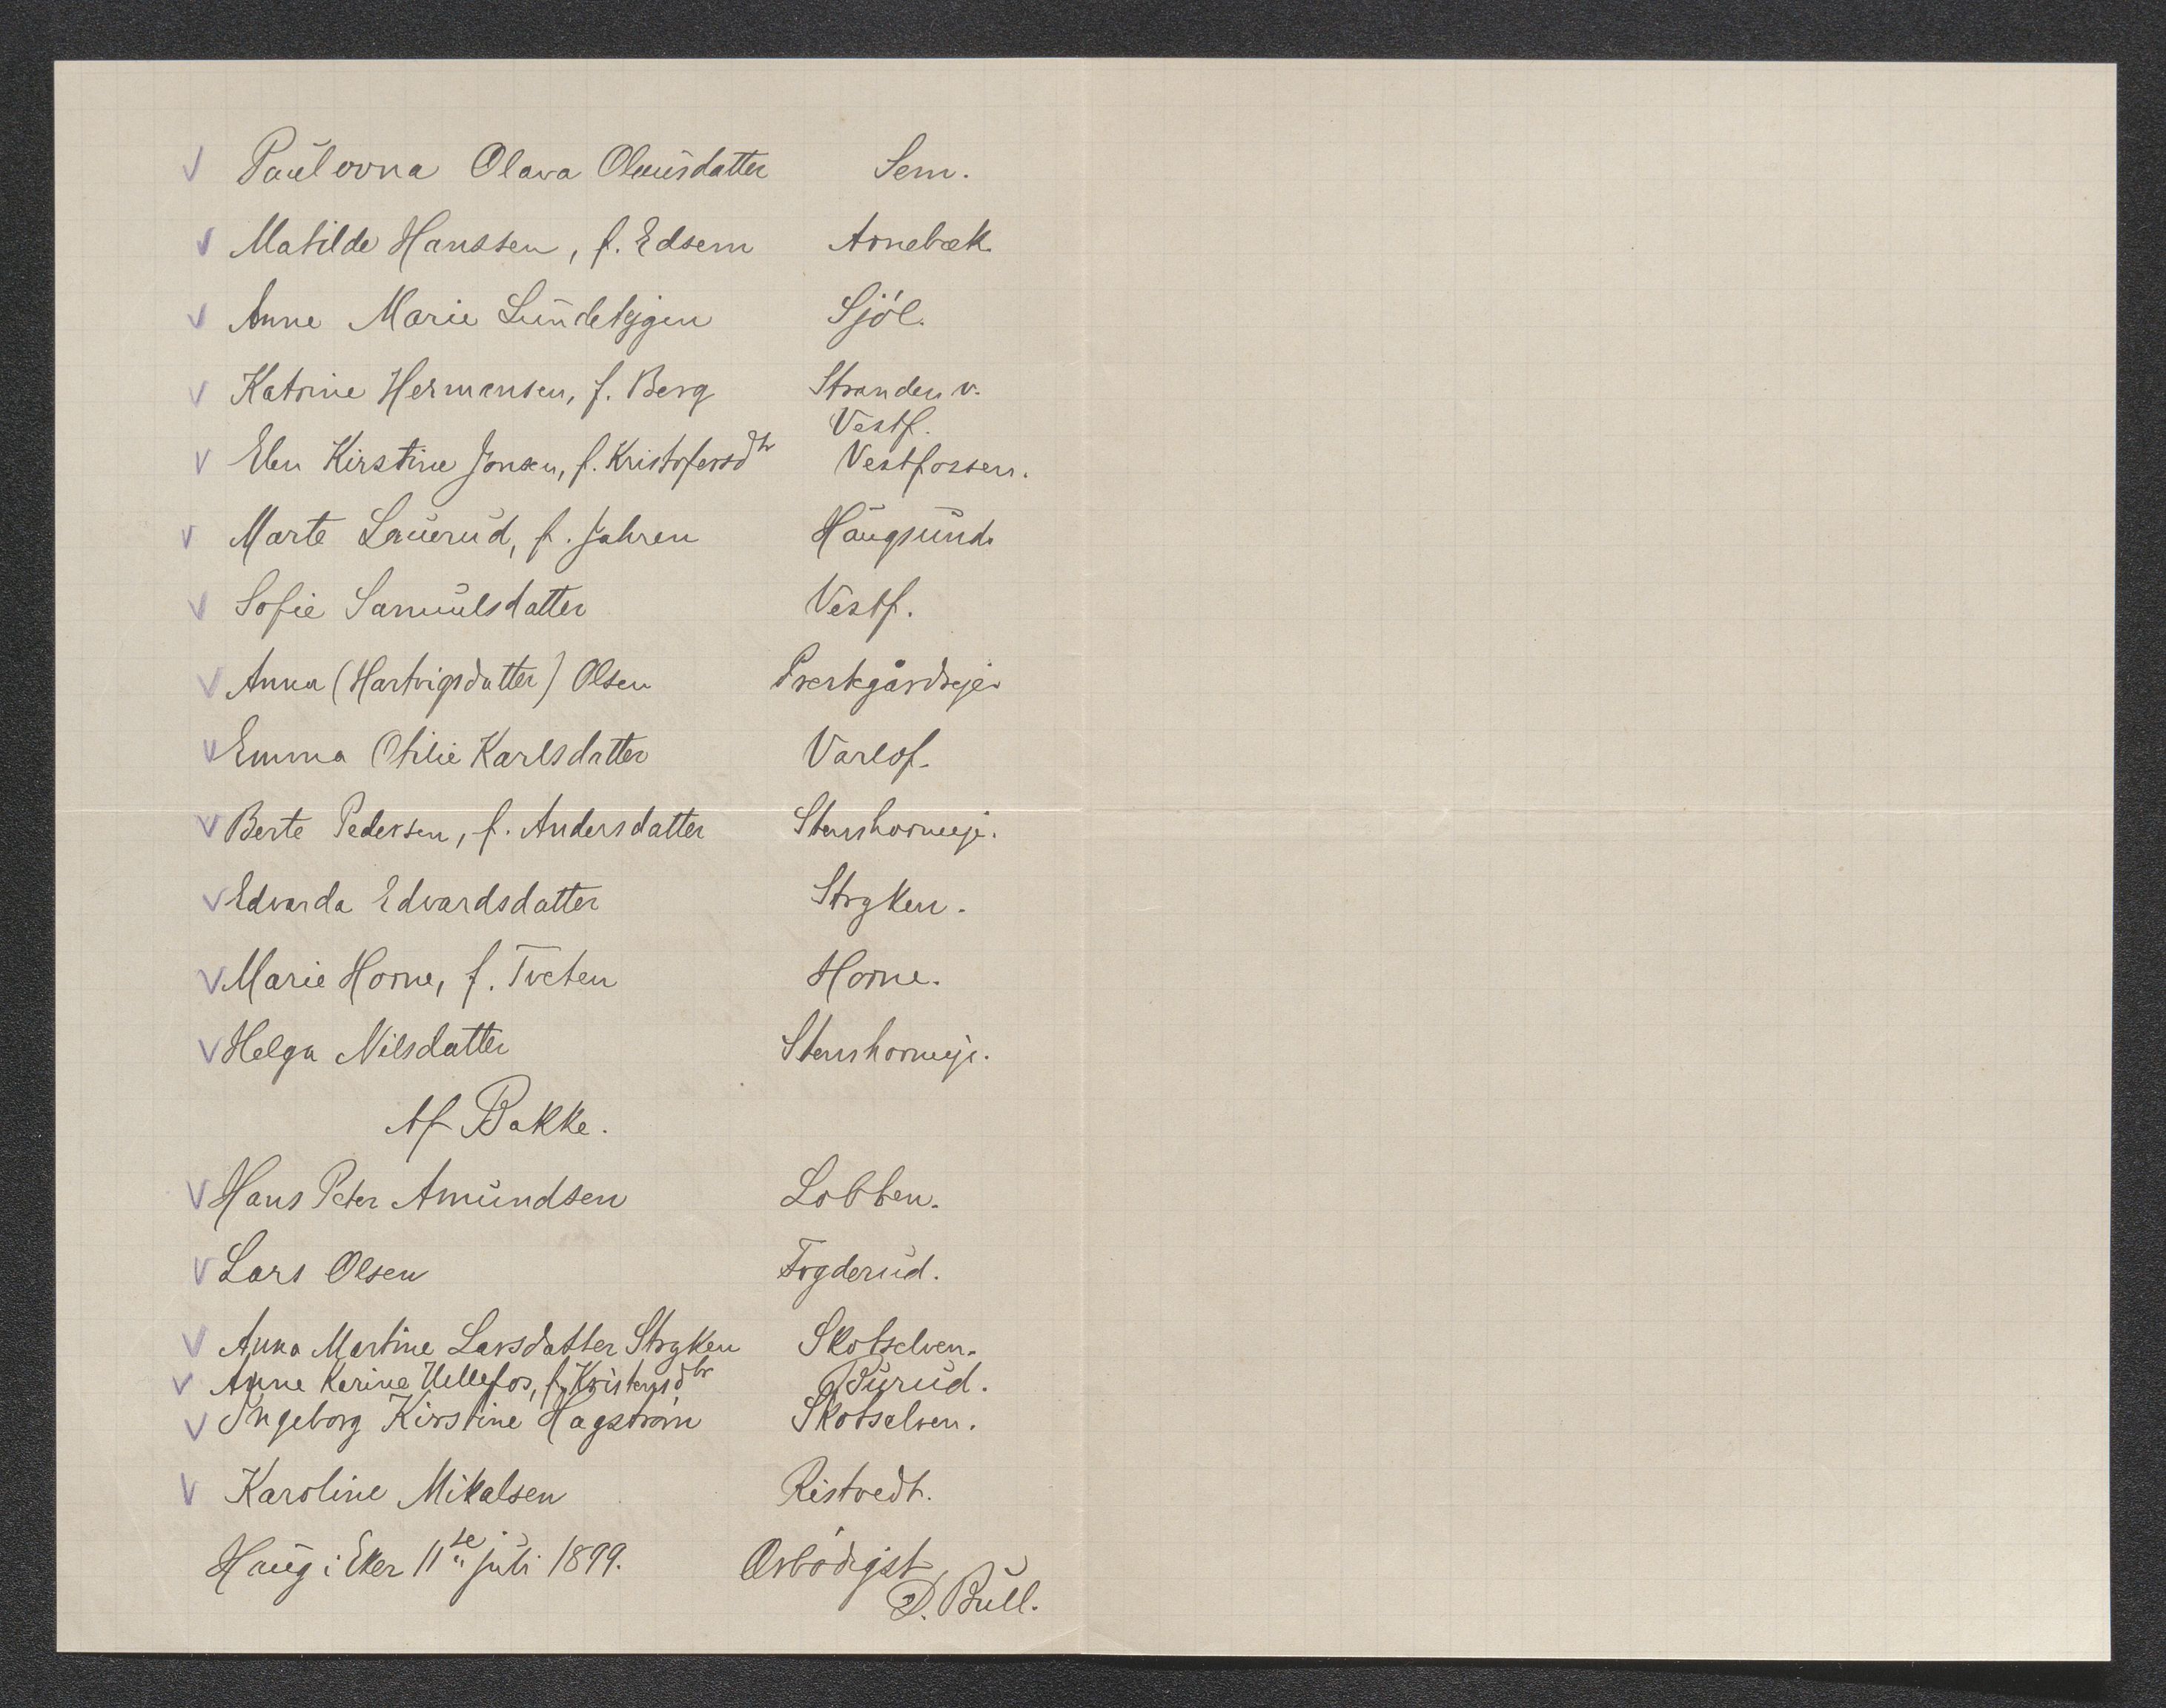 Paulovna Olava Olausdatter Sem.
Matilde Hanssen, f. Edsem Arnebæk.
Anne Marie Lundetejgen Sjöl.
Katrine Hermansen, f. Berg Stranden v. Vestf.
Elen Kirstine Jonsen, f. Kristofersdtr Vestfossen.
Marte Laurud, f. Jahren Haugsund.
Sofie Samuelsdatter Vestf.
Anna (Hartvigsdatter) Olsen Præstegårdseje.
Emma Otilie Karlsdatter Varlof.
Berte Pedersen, f. Andersdatter Stenshorneje.
Edvarda Edvardsdatter Stryken.
Marie Horne, f. Tveten Horne.
Helga Nilsdatter Stenshorneje.
Af Bakke.
Hans Peter Amundsen Lobben.
Lars Olsen Fogderud.
Anna Martine Larsdatter Stryken Skotselven.
Anne Karine Hellefos, f. Kristensdtr Burud.
Ingeborg Kirstine Hagström Skotselven.
Karoline Mikalsen Ristvedt.
Haug i Eker 11te juli 1899. Ærbödigst
D. Bull.